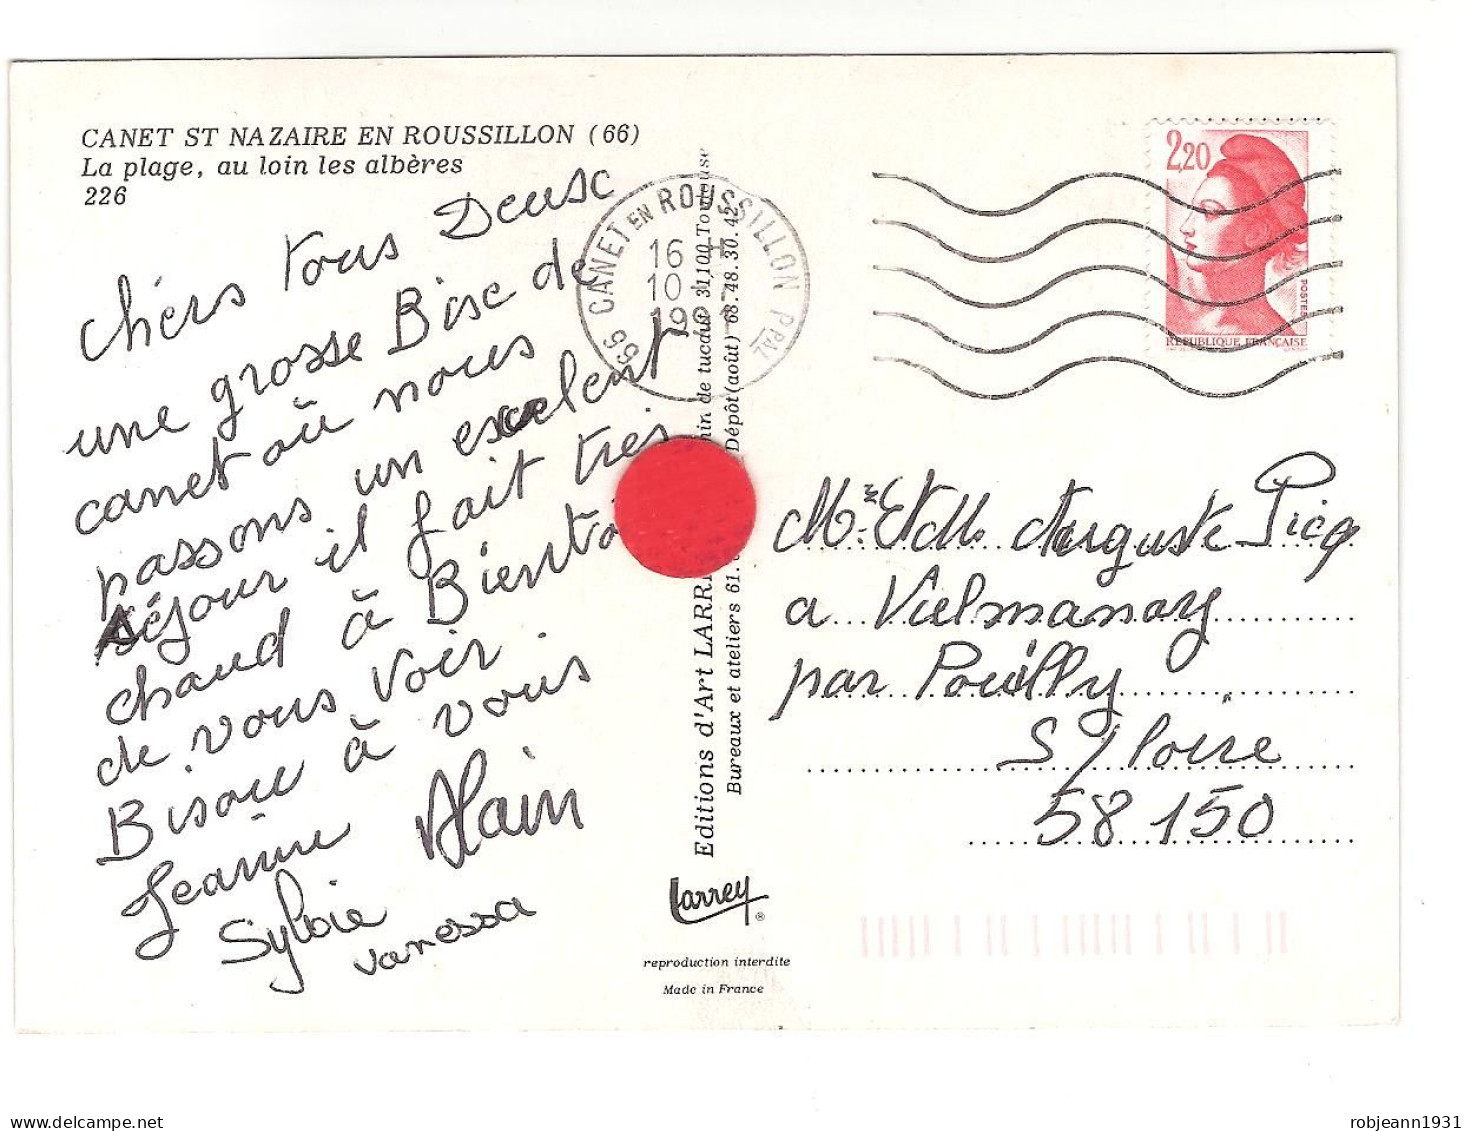 CANET ST NAZAIRE EN ROUSSILLON (66)
La plage, au loin les albères
226
Chers tous Deusc
une grosse Bise de
canet où nous
passons un excelent
séjour il fait très
chaud à Bientô
de vous voir.
Bisou à vous
Jeanine Alain
Sylvie
vanessa
66 CANET EN ROUSSILLON PPAL
16 H
10
Editions d'Art LARRE
min de tucaut 31,100 Toulouse
Bureaux et ateliers 61.
Dépôt(août) 68.48.30.42
Larrey ®
reproduction interdite
Made in France
2,20
POSTES
REPUBLIQUE FRANÇAISE
Auguste Picq
a Vielmanay
par Pouilly
S/loire
58 150
delcampe.net
robjeann1931